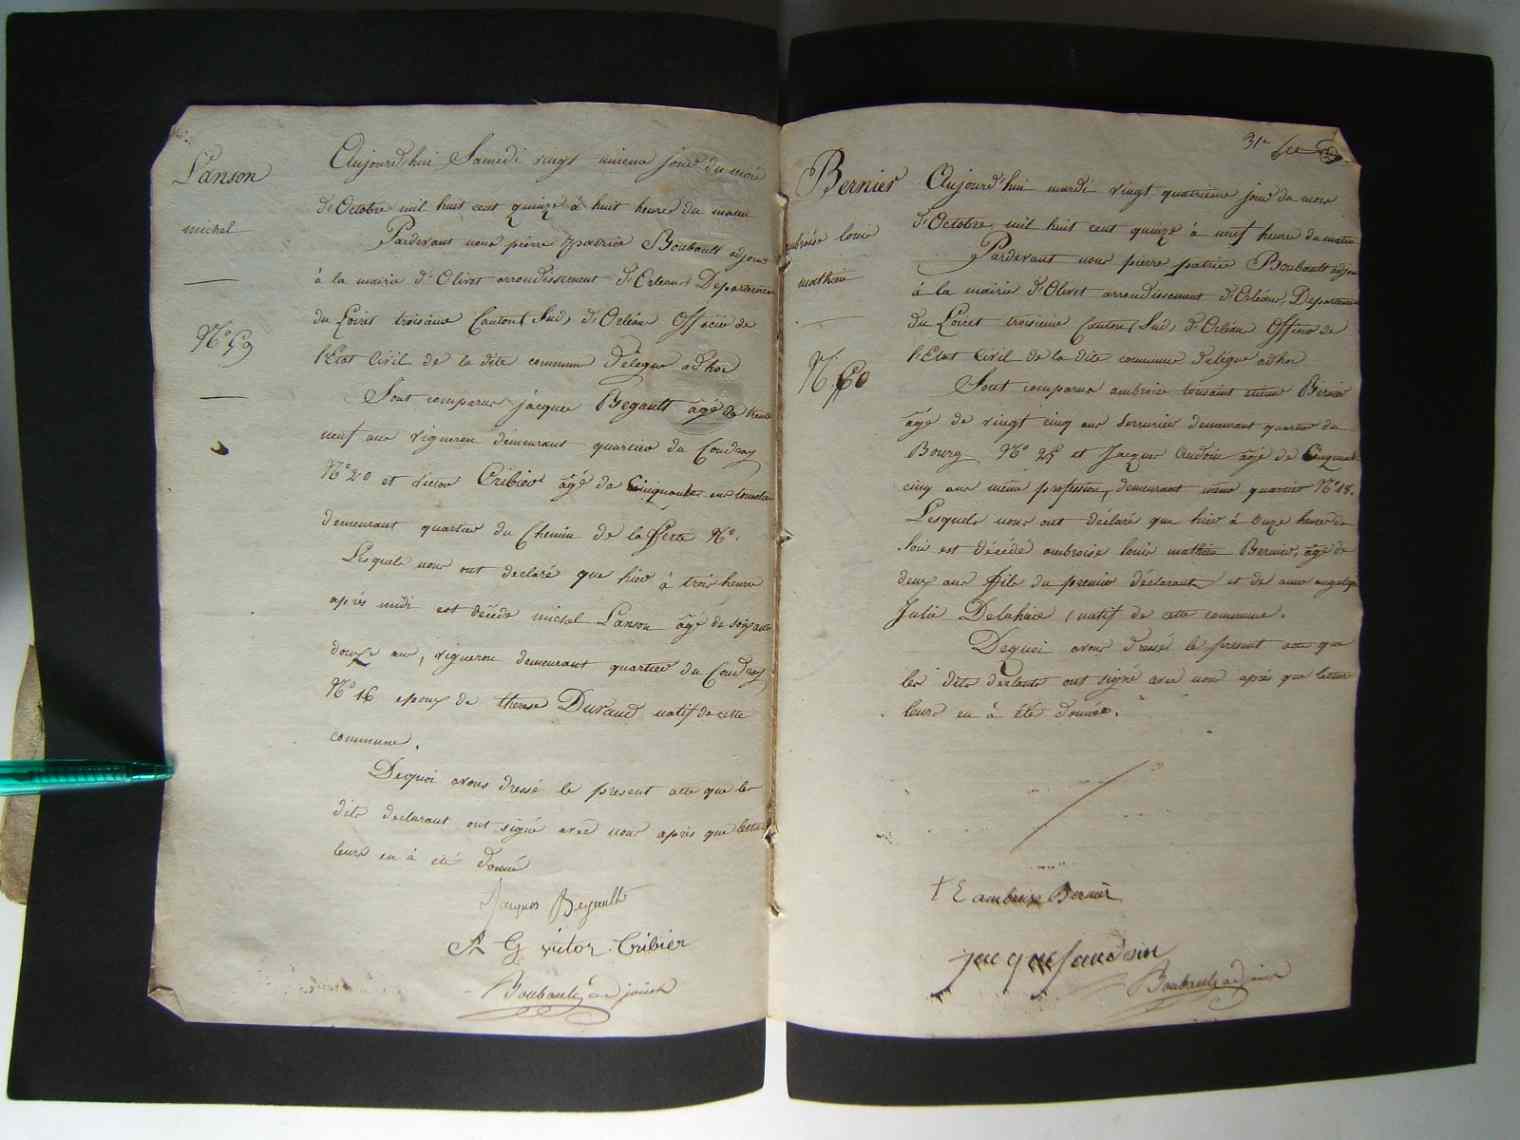 Lanson
michel
N.º 59
Aujourd'hui Samedi vingt unieme jour du mois
d'Octobre mil huit cent quinze à huit heure du matin
Pardevant nous pierre patrice Boubault adjoint
à la mairie d'Olivet arrondissement d'Orleans Departement
du Loiret troisieme Canton (Sud) d'Orléans Officier de
l'Etat Civil de la dite commune délégué adhoc
Sont comparus jacques Begault âgé de trente
neuf ans vigneron demeurant quartier du Coudray
N.º 20 et victor Cribier âgé de Cinquante un tonnelier
demeurant quartier du Chemin de la ferté N.º
Lesquels nous ont declaré que hier à trois heure
après midi est décédé michel Lanson âgé de soixante
douze ans, vigneron demeurant quartier du Coudray
N.º 16 epoux de therese Durand natif de cette
commune.
Dequoi avons dressé le present acte que les
dits declarant ont signé avec nous après que lecture
leurs en à été donné
Jacques Begault
victor Cribier
Boubault adjoint
31e
Bernier
ambroise louis
mathieu
N.º 60
Aujourd'hui mardi vingt quatrieme jour du mois
d'Octobre mil huit cent quinze à neuf heure du matin
Pardevant nous pierre patrice Boubault adjoint
à la mairie d'Olivet arrondissement d'Orléans, Departement
du Loiret troisieme Canton (Sud) d'Orléans Officier de
l'Etat Civil de la dite commune delégué adhoc
Sont comparus ambroise tousaint Bernier
âgé de vingt cinq ans Serrurier demeurant quartier du
Bourg N.º 25 et Jacques Audoin âgé de Cinquante
cinq ans même profession, demeurant même quartier N.º 18.
Lesquels nous ont déclaré que hier à onze heure du
Soir est décédé ambroise louis mathieu Bernier, âgé de
deux ans fils du premier déclarant et de anne angelique
Julie Delahaie, natif de cette commune.
Dequoi avons dressé le present acte que
les dits declarants ont signé avec nous après que lecture
leurs en à été donnée.
ambroise Bernier
jacques
Boubault adjoint